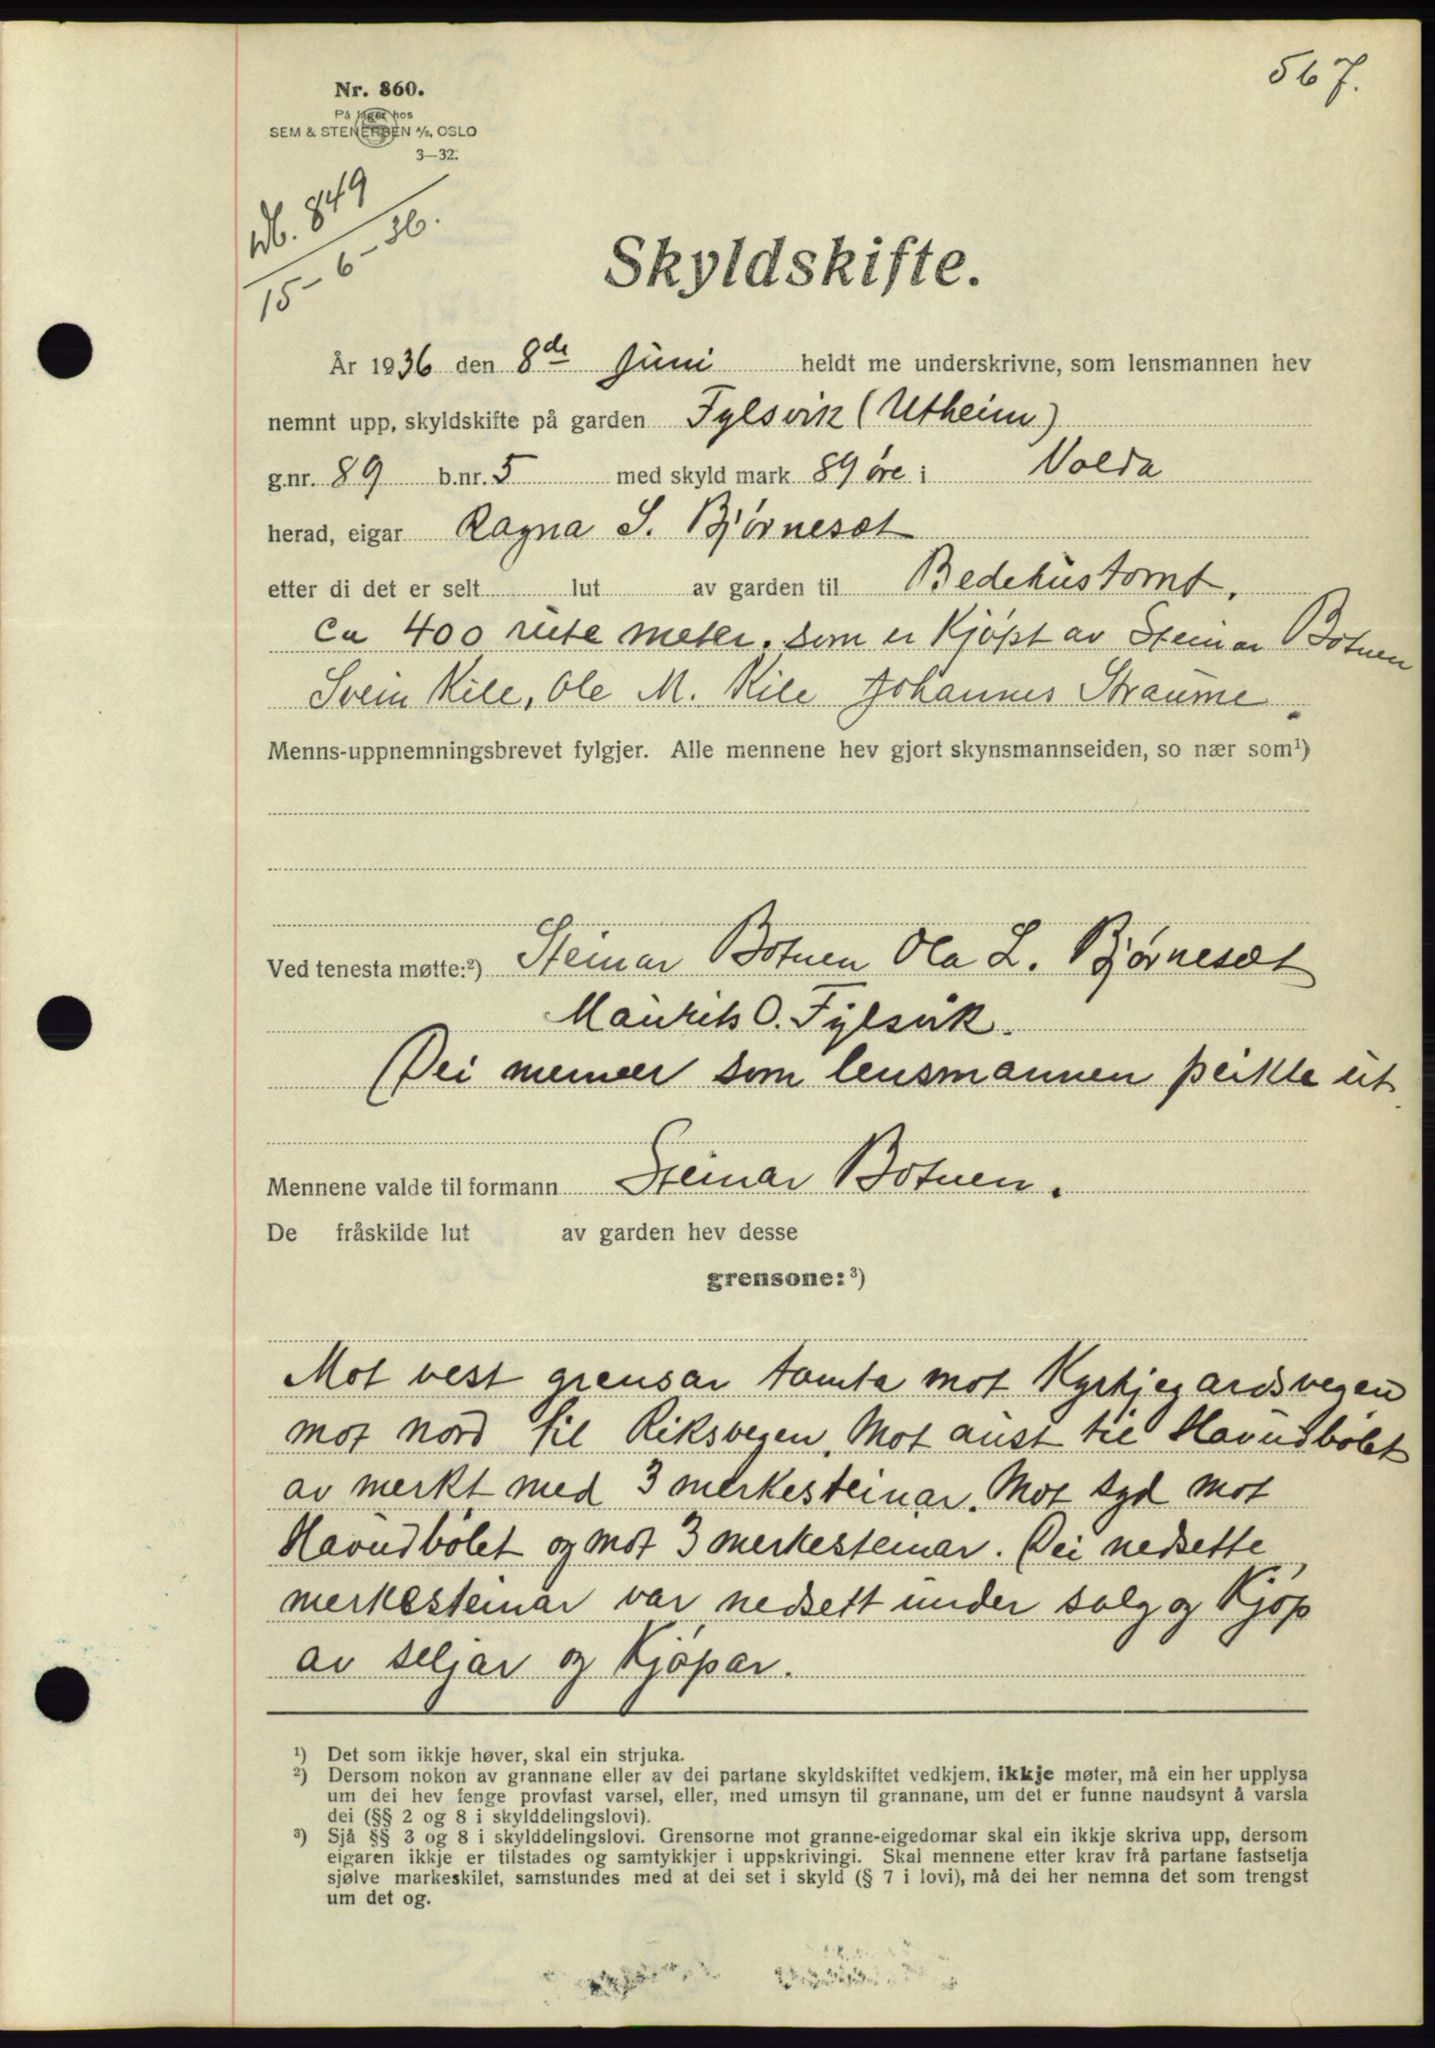 567.
Nr. 860.
På lager hos
SEM & STENERSEN A/S, OSLO
3—32.
Db. 849
15-6-36.
Skyldskifte.
År 1936 den 8de Juni heldt me underskrivne, som lensmannen hev
nemnt upp, skyldskifte på garden Fylsvik (Utheim)
g.nr. 89 b.nr. 5 med skyld mark 89 øre i Volda
herad, eigar Ragna S. Bjørneset
etter di det er selt lut av garden til Bedehustomt,
ca 400 rute meter. som er Kjöpt av Steinar Botnen
Svein Kile, Ole M. Kile Johannes Straume.
Menns-uppnemningsbrevet fylgjer. Alle mennene hev gjort skynsmannseiden, so nær som¹)
Ved tenesta møtte:²) Steinar Botnen Ola L. Bjørneset
Maurits O. Fylsvik.
(Dei menner som lensmannen peikte ut.
Mennene valde til formann Steinar Botnen.
De fråskilde lut av garden hev desse
grensone:³)
Mot vest grensar tomta mot Kyrkjegardsvegen
mot nord til Riksvegen. Mot aust til Havudbölet
av merkt med 3 merkesteinar. Mot syd mot
Havudbölet og mot 3 merkesteinar. Dei nedsette
merkesteinar var nedsett under salg og Kjöp
av seljar og Kjöpar.
¹) Det som ikkje høver, skal ein strjuka.
²) Dersom nokon av grannane eller av dei partane skyldskiftet vedkjem, ikkje møter, må ein her upplysa
um dei hev fenge provfast varsel, eller, med umsyn til grannane, um det er funne naudsynt å varsla
dei (§§ 2 og 8 i skylddelingslovi).
³) Sjå §§ 3 og 8 i skylddelingslovi. Grensorne mot granne-eigedomar skal ein ikkje skriva upp, dersom
eigaren ikkje er tilstades og samtykkjer i uppskrivingi. Skal mennene etter krav frå partane fastsetja
sjølve markeskilet, samstundes med at dei set i skyld (§ 7 i lovi), må dei her nemna det som trengst
um det og.